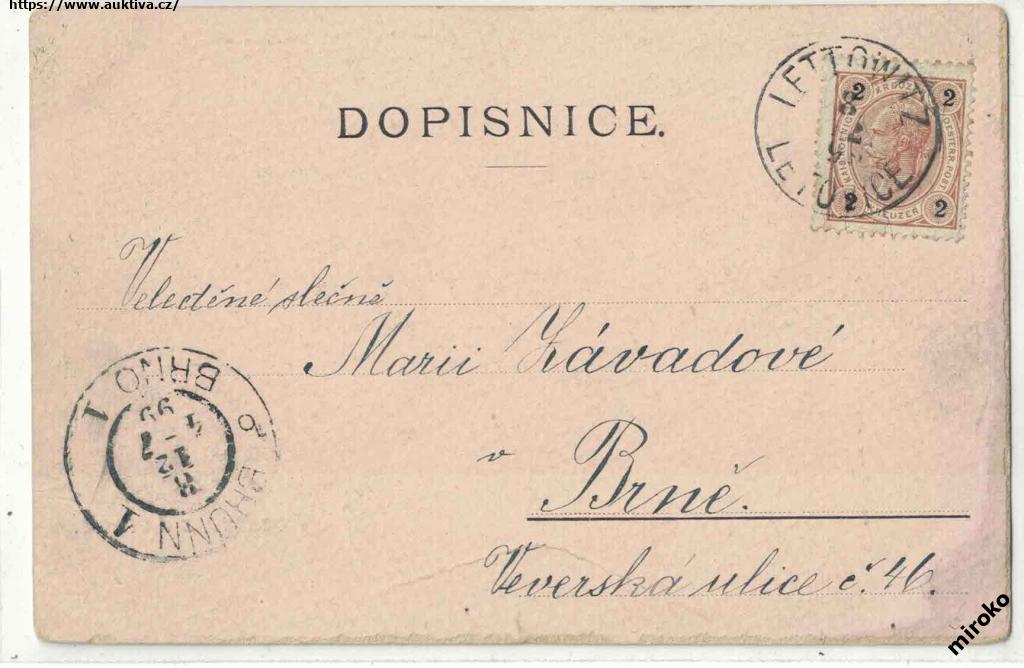 https://www.auktiva.cz/
DOPISNICE.
LETTOWITZ
LETOVICE
2 2
KREUZER
OESTERR. POST
2 2
Veleděné slečně
Marii Závadové
v
Brně.
Veverská ulice č. 46.
BRNO 1
BRÜNN 1
8
12
99
miroko